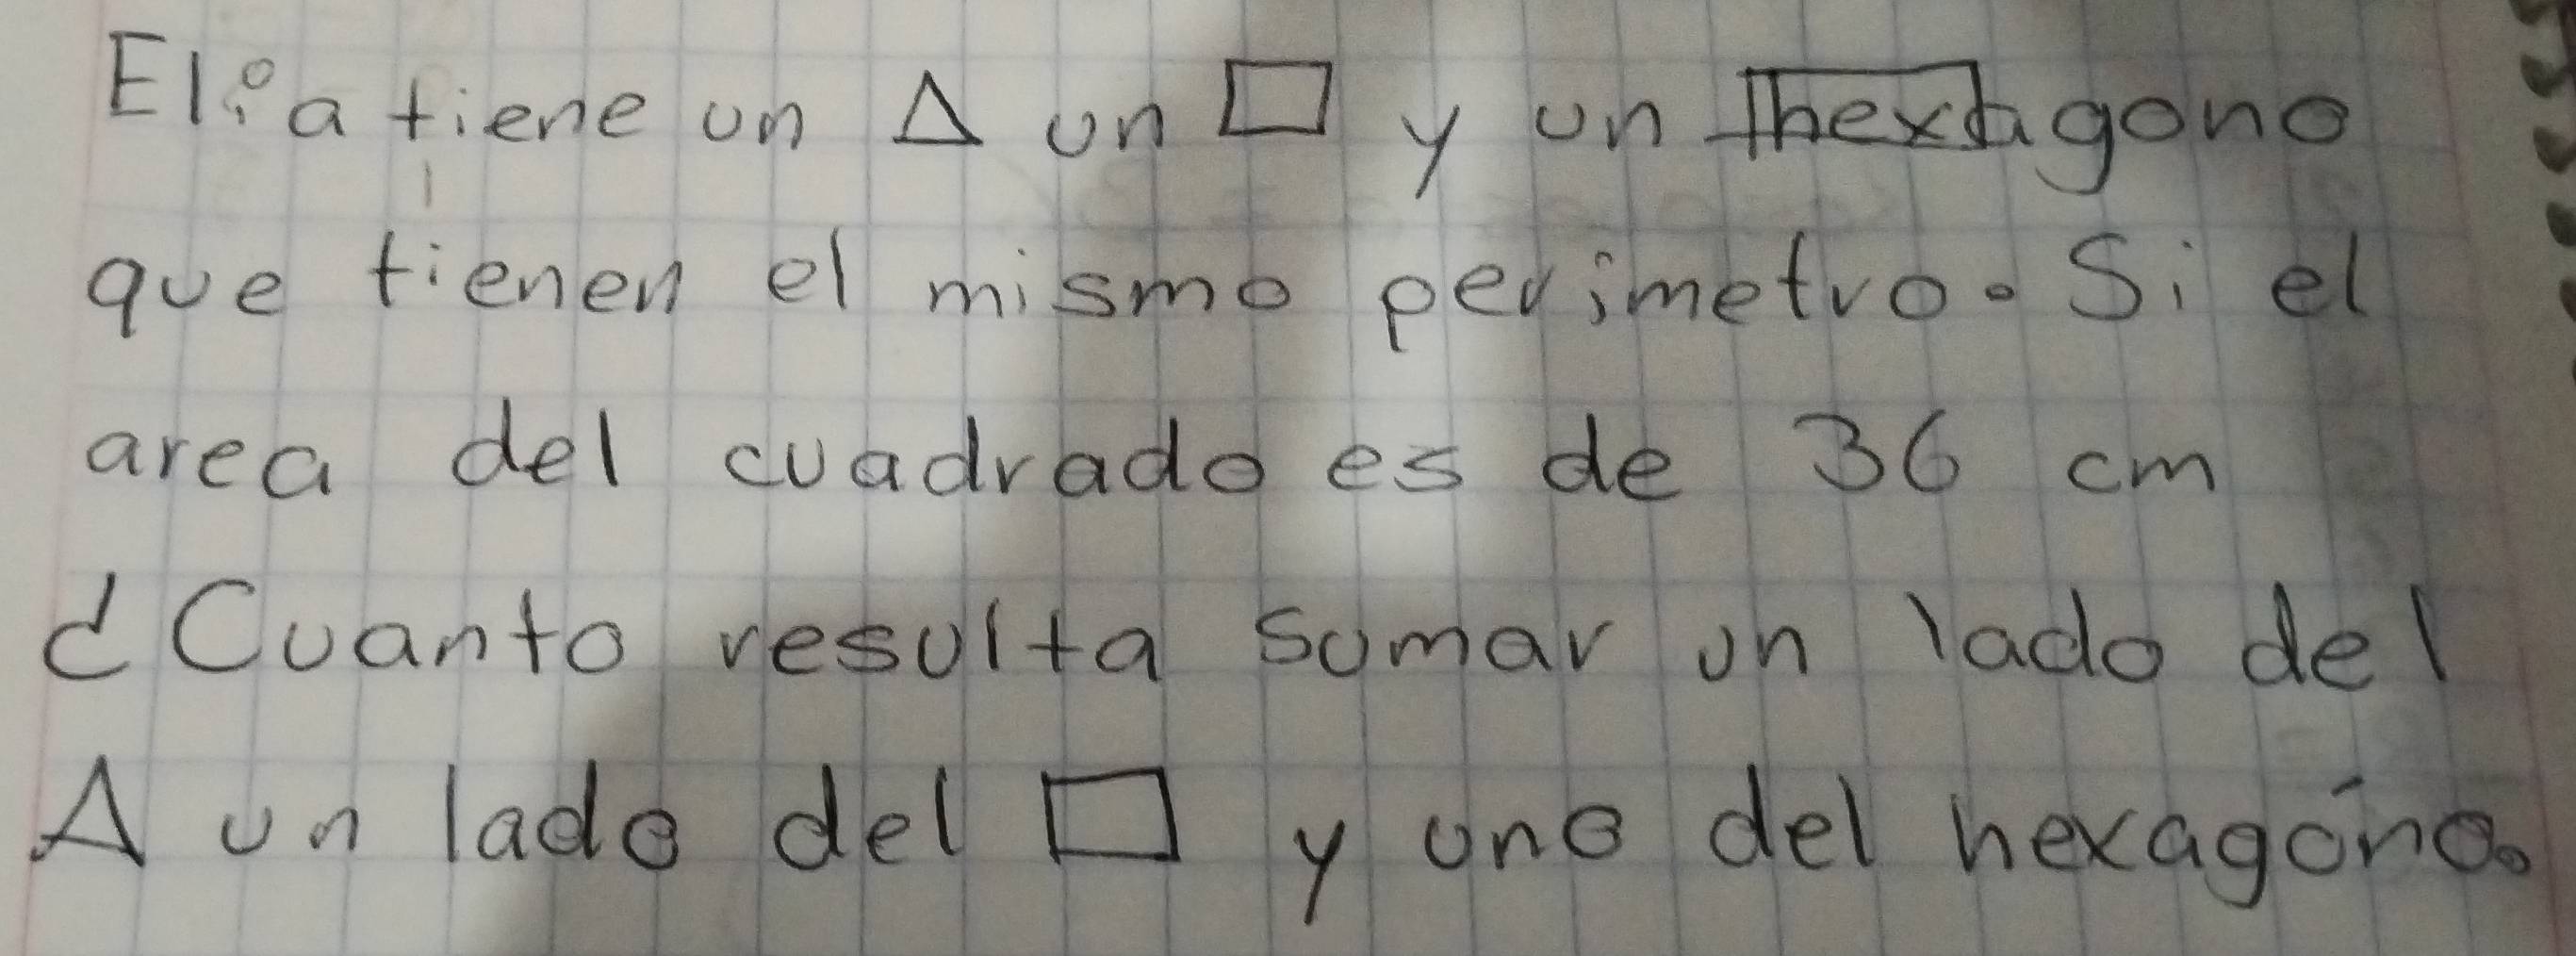 Elia tiene un △ un □ y un hexagono
que tienen el mismo perimetro. Si el
area del cuadrado es de 36 cm
¿Cuanto resulta sumar un lado del
△ un lado del □ y uno del hexagóno.